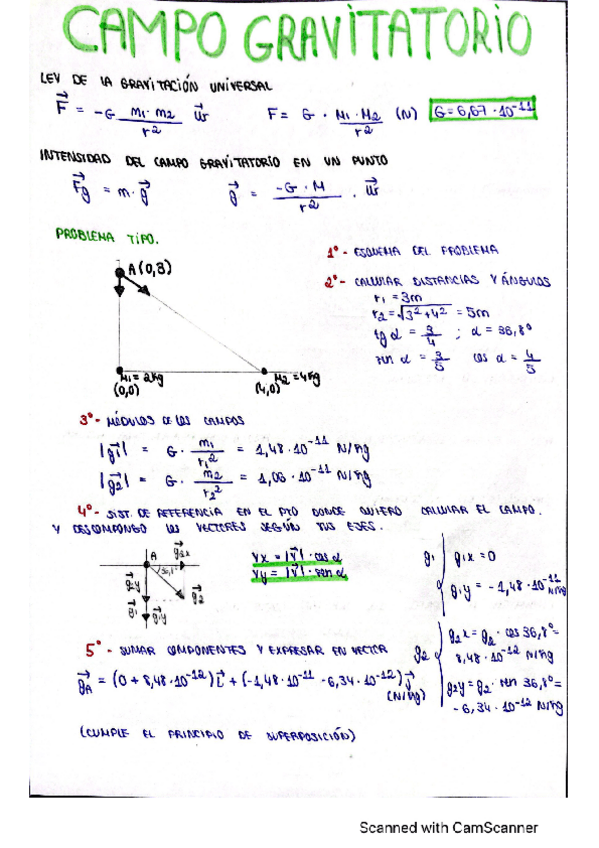 CAMPO GRAVITATORIO
LEY DE LA GRAVITACIÓN UNIVERSAL
F⃗ = -G (m1 · m2)/r² u⃗r    F = G · (M1 · M2)/r² (N)    G = 6,67 · 10⁻¹¹
INTENSIDAD DEL CAMPO GRAVITATORIO EN UN PUNTO
F⃗g = m · g⃗    g⃗ = (-G · M)/r² · u⃗r
PROBLEMA TIPO.
A(0,3)
M1 = 2kg
(0,0)
M2 = 4kg
(4,0)
1º- ESQUEMA DEL PROBLEMA
2º- CALCULAR DISTANCIAS Y ÁNGULOS
r1 = 3m
r2 = √(3² + 4²) = 5m
tg α = 3/4 ; α = 36,8º
sen α = 3/5    cos α = 4/5
3º- MÓDULOS DE LOS CAMPOS
|g⃗1| = G · m1/r1² = 1,48 · 10⁻¹¹ N/kg
|g⃗2| = G · m2/r2² = 1,06 · 10⁻¹¹ N/kg
4º- SIST. DE REFERENCIA EN EL PTO DONDE QUIERO CALCULAR EL CAMPO.
Y DESCOMPONGO LOS VECTORES SEGÚN SUS EJES.
A
g⃗2x
g⃗2y
g⃗1
g⃗2
g⃗1y
Vx = |V⃗| · cos α
Vy = |V⃗| · sen α
g1
g1x = 0
g1y = -1,48 · 10⁻¹¹ N/kg
g2
g2x = g2 · cos 36,8º =
8,48 · 10⁻¹² N/kg
g2y = g2 · sen 36,8º =
-6,34 · 10⁻¹² N/kg
5º- SUMAR COMPONENTES Y EXPRESAR EN VECTOR
g⃗A = (0 + 8,48 · 10⁻¹²) i⃗ + (-1,48 · 10⁻¹¹ - 6,34 · 10⁻¹²) j⃗
(N/kg)
(CUMPLE EL PRINCIPIO DE SUPERPOSICIÓN)
Scanned with CamScanner